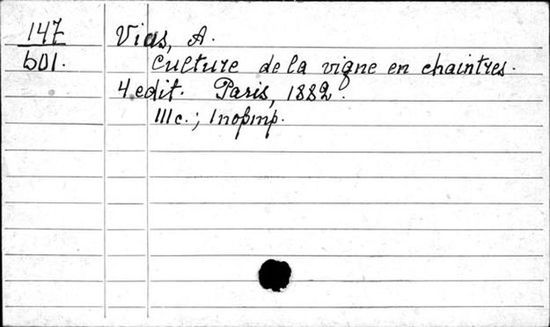 147 Vias, A.
601. Culture de la vigne en chaintres.
4 edit. Paris, 1882.
111 c.; 1 портр.